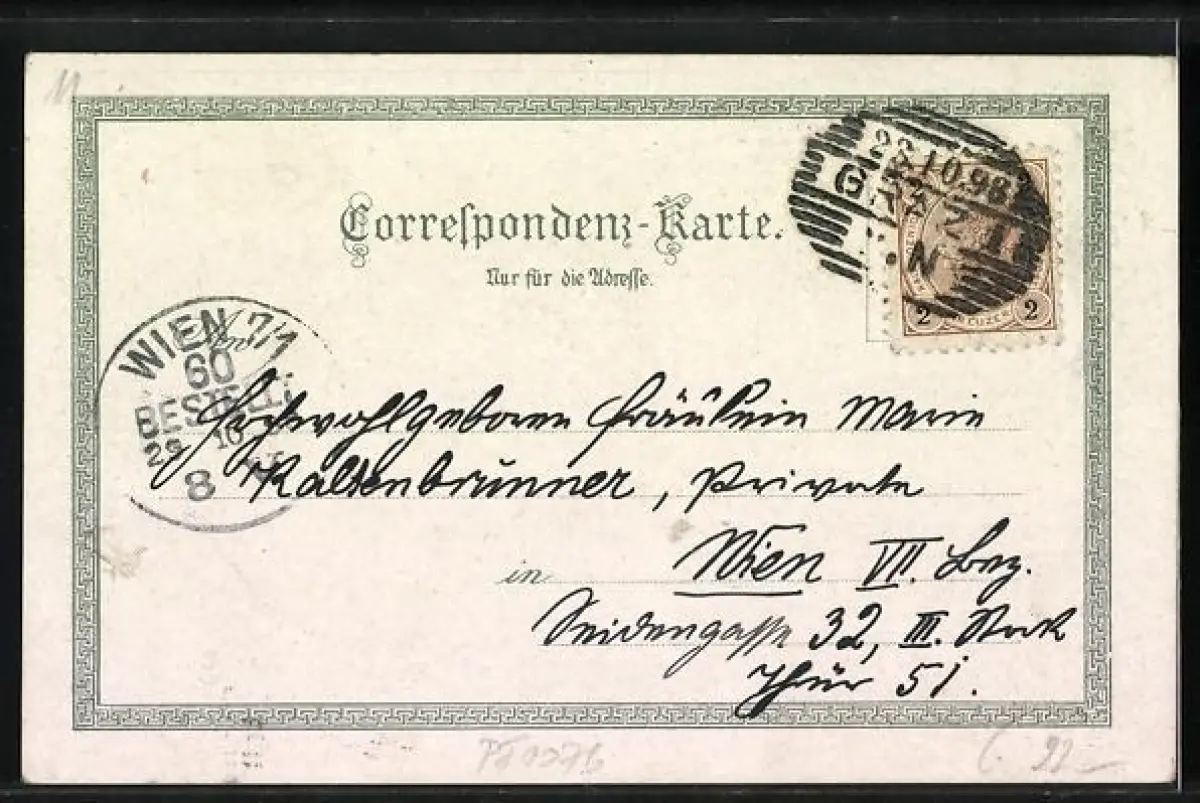 11
Correspondenz-Karte.
Nur für die Adresse.
28.10.98
GRAZ
N
2 2
WIEN 7/1
60
BESTELLT
29 10
8
Hochwohlgeboren Fräulein Marie
Kaltenbrunner, Private
in Wien VII. Bez.
Seidengasse 32, III. Stock
Thür 51.